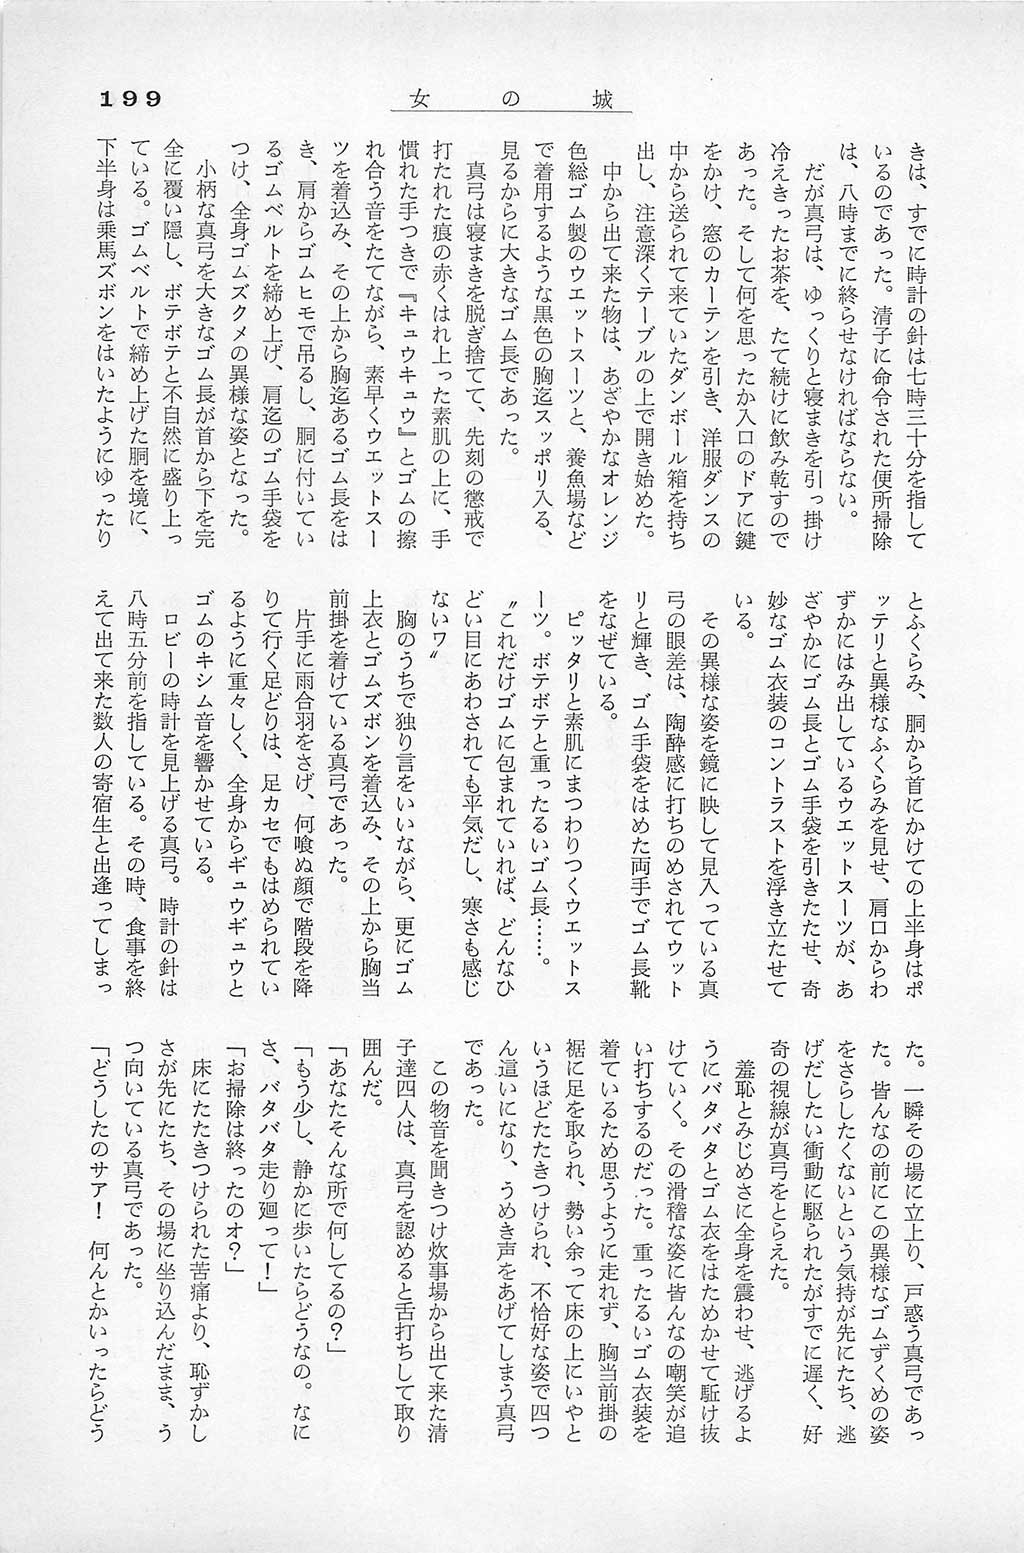 199
女の城
きは、すでに時計の針は七時三十分を指して
いるのであった。清子に命令された便所掃除
は、八時までに終らせなければならない。
だが真弓は、ゆっくりと寝まきを引っ掛け
冷えきったお茶を、たて続けに飲み乾すので
あった。そして何を思ったか入口のドアに鍵
をかけ、窓のカーテンを引き、洋服ダンスの
中から送られて来ていたダンボール箱を持ち
出し、注意深くテーブルの上で開き始めた。
中から出て来た物は、あざやかなオレンジ
色総ゴム製のウエットスーツと、養魚場など
で着用するような黒色の胸迄スッポリ入る、
見るからに大きなゴム長であった。
真弓は寝まきを脱ぎ捨てて、先刻の懲戒で
打たれた痕の赤くはれ上った素肌の上に、手
慣れた手つきで『キュウキュウ』とゴムの擦
れ合う音をたてながら、素早くウエットスー
ツを着込み、その上から胸迄あるゴム長をは
き、肩からゴムヒモで吊るし、胴に付いてい
るゴムベルトを締め上げ、肩迄のゴム手袋を
つけ、全身ゴムズクメの異様な姿となった。
小柄な真弓を大きなゴム長が首から下を完
全に覆い隠し、ボテボテと不自然に盛り上っ
ている。ゴムベルトで締め上げた胴を境に、
下半身は乗馬ズボンをはいたようにゆったり
とふくらみ、胴から首にかけての上半身はポ
ッテリと異様なふくらみを見せ、肩口からわ
ずかにはみ出しているウエットスーツが、あ
ざやかにゴム長とゴム手袋を引きたたせ、奇
妙なゴム衣装のコントラストを浮き立たせて
いる。
その異様な姿を鏡に映して見入っている真
弓の眼差は、陶酔感に打ちのめされてウット
リと輝き、ゴム手袋をはめた両手でゴム長靴
をなぜている。
ピッタリと素肌にまつわりつくウエットス
ーツ。ボテボテと重ったるいゴム長……。
〝これだけゴムに包まれていれば、どんなひ
どい目にあわされても平気だし、寒さも感じ
ないワ〟
胸のうちで独り言をいいながら、更にゴム
上衣とゴムズボンを着込み、その上から胸当
前掛を着けている真弓であった。
片手に雨合羽をさげ、何喰ぬ顔で階段を降
りて行く足どりは、足カセでもはめられてい
るように重々しく、全身からギュウギュウと
ゴムのキシム音を響かせている。
ロビーの時計を見上げる真弓。時計の針は
八時五分前を指している。その時、食事を終
えて出て来た数人の寄宿生と出逢ってしまっ
た。一瞬その場に立上り、戸惑う真弓であっ
た。皆んなの前にこの異様なゴムずくめの姿
をさらしたくないという気持が先にたち、逃
げだしたい衝動に駆られたがすでに遅く、好
奇の視線が真弓をとらえた。
羞恥とみじめさに全身を震わせ、逃げるよ
うにバタバタとゴム衣をはためかせて駈け抜
けていく。その滑稽な姿に皆んなの嘲笑が追
い打ちするのだった。重ったるいゴム衣装を
着ているため思うように走れず、胸当前掛の
裾に足を取られ、勢い余って床の上にいやと
いうほどたたきつけられ、不恰好な姿で四つ
ん這いになり、うめき声をあげてしまう真弓
であった。
この物音を聞きつけ炊事場から出て来た清
子達四人は、真弓を認めると舌打ちして取り
囲んだ。
「あなたそんな所で何してるの？」
「もう少し、静かに歩いたらどうなの。なに
さ、バタバタ走り廻って！」
「お掃除は終ったのオ？」
床にたたきつけられた苦痛より、恥ずかし
さが先にたち、その場に坐り込んだまま、う
つ向いている真弓であった。
「どうしたのサア！　何んとかいったらどう